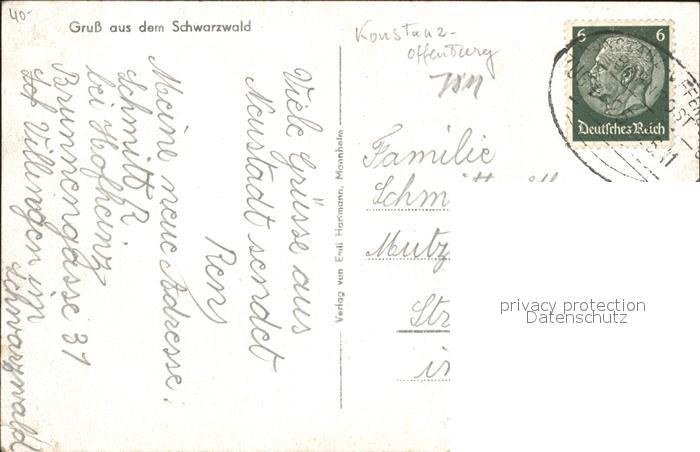 40-
Gruß aus dem Schwarzwald
Konstanz-
Offenburg
6 6
Deutsches Reich
Viele Grüsse aus
Neustadt sendet
Meine neue Adresse:
Schmitt R
bei Hofheinz
Brunnengasse 31
Villingen im
Schwarzwald
Verlag von Emil Hartmann, Mannheim
Familie
Schm
Mutz
Str
privacy protection
Datenschutz